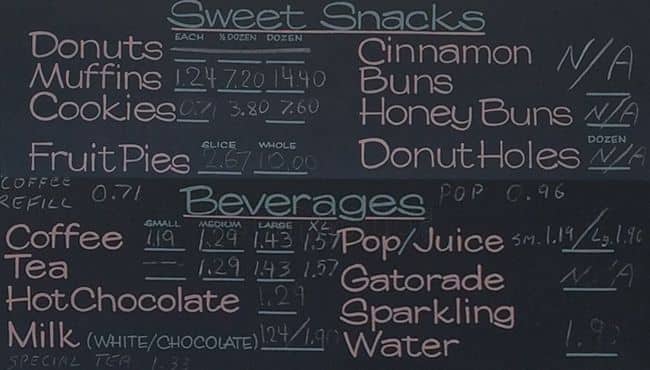 Sweet Snacks
EACH ½ DOZEN DOZEN
Donuts
Muffins 1.24 7.20 14.40
Cookies 0.71 3.80 7.60
SLICE WHOLE
Fruit Pies 2.67 10.00
Cinnamon Buns N/A
Honey Buns N/A
DOZEN
Donut Holes N/A
COFFEE REFILL 0.71
Beverages
POP 0.96
SMALL MEDIUM LARGE XL
Coffee 1.19 1.29 1.43 1.57
Tea 1.29 1.43 1.57
Hot Chocolate 1.29
Milk (WHITE/CHOCOLATE) 1.24/
SPECIAL TEA 1.33
Pop/Juice SM. 1.19/Lg. 1.96
Gatorade N/A
Sparkling
Water